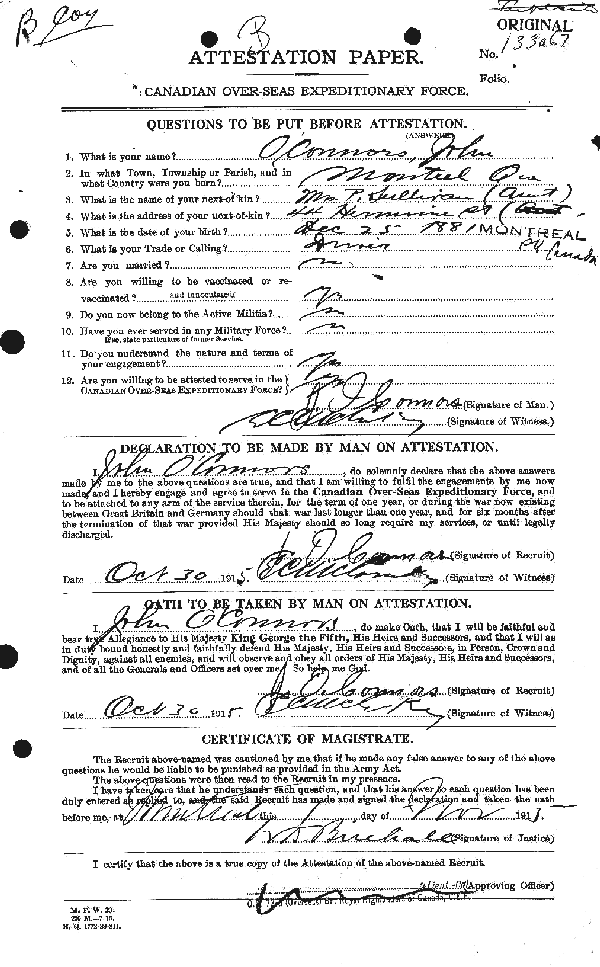 B Coy
B
ORIGINAL
ATTESTATION PAPER.
No. 133267
Folio.
CANADIAN OVER-SEAS EXPEDITIONARY FORCE.
QUESTIONS TO BE PUT BEFORE ATTESTATION.
(ANSWERS)
1. What is your name? O'Connors, John
2. In what Town, Township or Parish, and in
what Country were you born? Montreal Que
3. What is the name of your next-of-kin? Mrs P. Sullivan (Aunt)
4. What is the address of your next-of-kin? 44 Hermine St
5. What is the date of your birth? Dec 25 1881 MONTREAL
PQ Canada
6. What is your Trade or Calling? Driver
7. Are you married?
8. Are you willing to be vaccinated or re-
vaccinated? and inoculated?
9. Do you now belong to the Active Militia?
10. Have you ever served in any Military Force?
If so, state particulars of former Service.
11. Do you understand the nature and terms of
your engagement?
12. Are you willing to be attested to serve in the
CANADIAN OVER-SEAS EXPEDITIONARY FORCE?
J O'Connors (Signature of Man.)
(Signature of Witness)
DECLARATION TO BE MADE BY MAN ON ATTESTATION.
I, John O'Connors, do solemnly declare that the above answers
made by me to the above questions are true, and that I am willing to fulfil the engagements by me now
made, and I hereby engage and agree to serve in the Canadian Over-Seas Expeditionary Force, and
to be attached to any arm of the service therein, for the term of one year, or during the war now existing
between Great Britain and Germany should that war last longer than one year, and for six months after
the termination of that war provided His Majesty should so long require my services, or until legally
discharged.
J O'Connors (Signature of Recruit)
Date Oct 30 1915. (Signature of Witness)
OATH TO BE TAKEN BY MAN ON ATTESTATION.
I, John O'Connors, do make Oath, that I will be faithful and
bear true Allegiance to His Majesty King George the Fifth, His Heirs and Successors, and that I will as
in duty bound honestly and faithfully defend His Majesty, His Heirs and Successors, in Person, Crown and
Dignity, against all enemies, and will observe and obey all orders of His Majesty, His Heirs and Successors,
and of all the Generals and Officers set over me. So help me God.
J O'Connors (Signature of Recruit)
Date Oct 30 1915. (Signature of Witness)
CERTIFICATE OF MAGISTRATE.
The Recruit above-named was cautioned by me that if he made any false answer to any of the above
questions he would be liable to be punished as provided in the Army Act.
The above questions were then read to the Recruit in my presence.
I have taken care that he understands each question, and that his answer to each question has been
duly entered as replied to, and the said Recruit has made and signed the declaration and taken the oath
before me, at Montreal this 1 day of Nov 1915.
(Signature of Justice)
I certify that the above is a true copy of the Attestation of the above-named Recruit.
(Approving Officer)
M. F. W. 23.
H. Q. 1772-39-841.